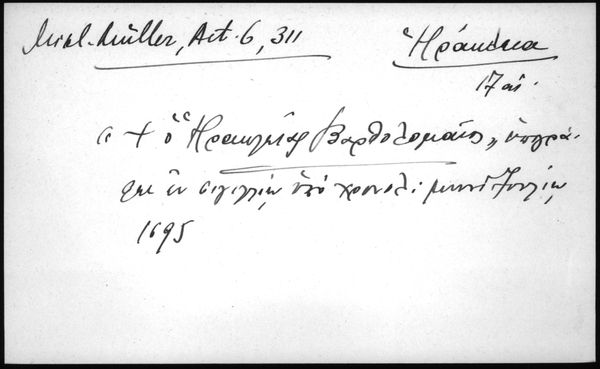 Mikl.-Müller, Act. 6, 311
Ἡράκλεια
17 αἰ.
« + ὁ Ἡρακλείας Βαρθολομαῖος „ ὑπογρά-
φει ἐν σιγιλλίῳ ὑπὸ χρονολ: μηνὶ Ἰουλίῳ
1695